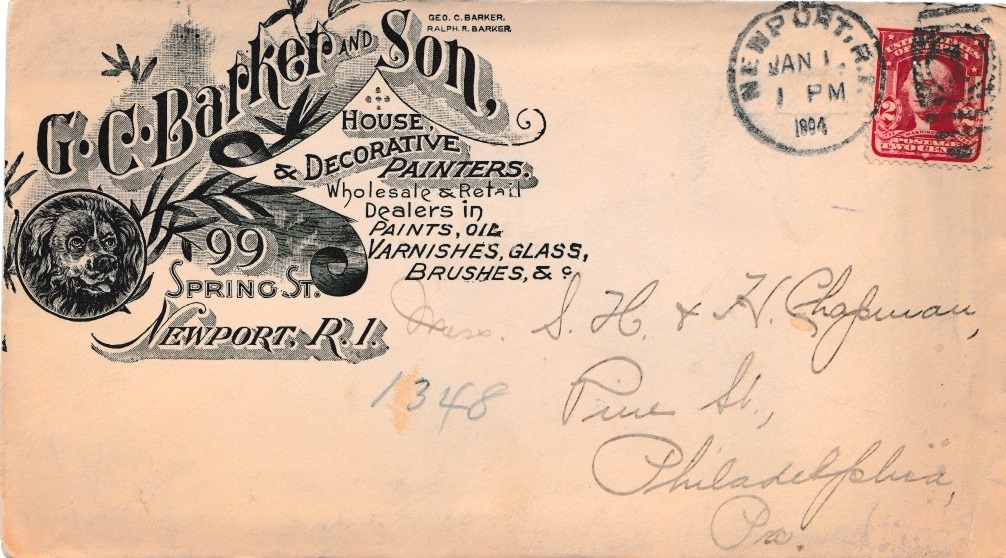 GEO. C. BARKER.
RALPH. R. BARKER.
G. C. Barker AND Son,
HOUSE,
& DECORATIVE
PAINTERS.
Wholesale & Retail
Dealers in
PAINTS, OIL
VARNISHES, GLASS,
BRUSHES, & c
99
SPRING ST.
NEWPORT, R. I.
NEWPORT, R.I.
JAN 1
1 PM
1894
UNITED STATES
2
TWO CENTS
S. H. & H. Chapman,
1348
Pine St.,
Philadelphia,
Pa.